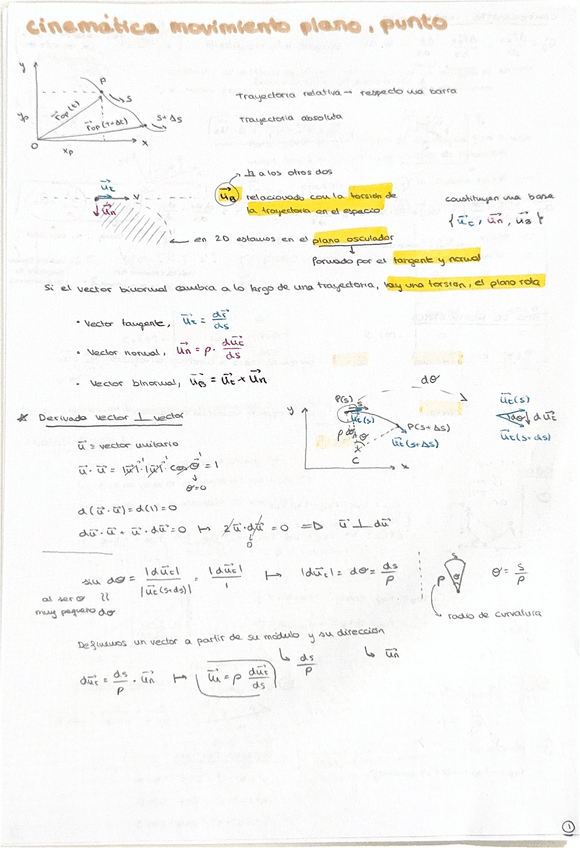 cinemática movimiento plano, punto
y
P
s
s+Δs
r⃗op(t)
r⃗op(t+Δt)
yp
O
xp
x
Trayectoria relativa → respecto una barra
Trayectoria absoluta
⊥ a los otros dos
u⃗t
v
u⃗n
u⃗B relacionado con la torsión de
la trayectoria en el espacio
constituyen una base
{ u⃗t, u⃗n, u⃗B }
en 2D estamos en el plano osculador
formado por el tangente y normal
Si el vector binormal cambia a lo largo de una trayectoria, hay una torsión, el plano rota
• Vector tangente, u⃗t = dr⃗/ds
• Vector normal, u⃗n = ρ · du⃗t/ds
• Vector binormal, u⃗B = u⃗t × u⃗n
dθ
y
P(s)
s
u⃗t(s)
P(s+Δs)
u⃗t(s+Δs)
ρ
θ
C
x
u⃗t(s)
dθ
du⃗t
u⃗t(s+ds)
* Derivada vector ⊥ vector
u⃗ = vector unitario
u⃗ · u⃗ = |u⃗|¹ · |u⃗|¹ · cos θ¹ = 1
θ=0
d(u⃗·u⃗) = d(1) = 0
du⃗·u⃗ + u⃗·du⃗ = 0 ↦ 2u⃗·du⃗ = 0 => u⃗ ⊥ du⃗
0
sin dθ = |du⃗t|/|u⃗t(s+ds)| = |du⃗t|/1 ↦ |du⃗t| = dθ = ds/ρ
al ser θ
muy pequeño dθ
s
ρ
θ
θ = s/ρ
radio de curvatura
Definimos un vector a partir de su módulo y su dirección
ds/ρ
u⃗n
du⃗t = ds/ρ · u⃗n ↦ u⃗n = ρ du⃗t/ds
1